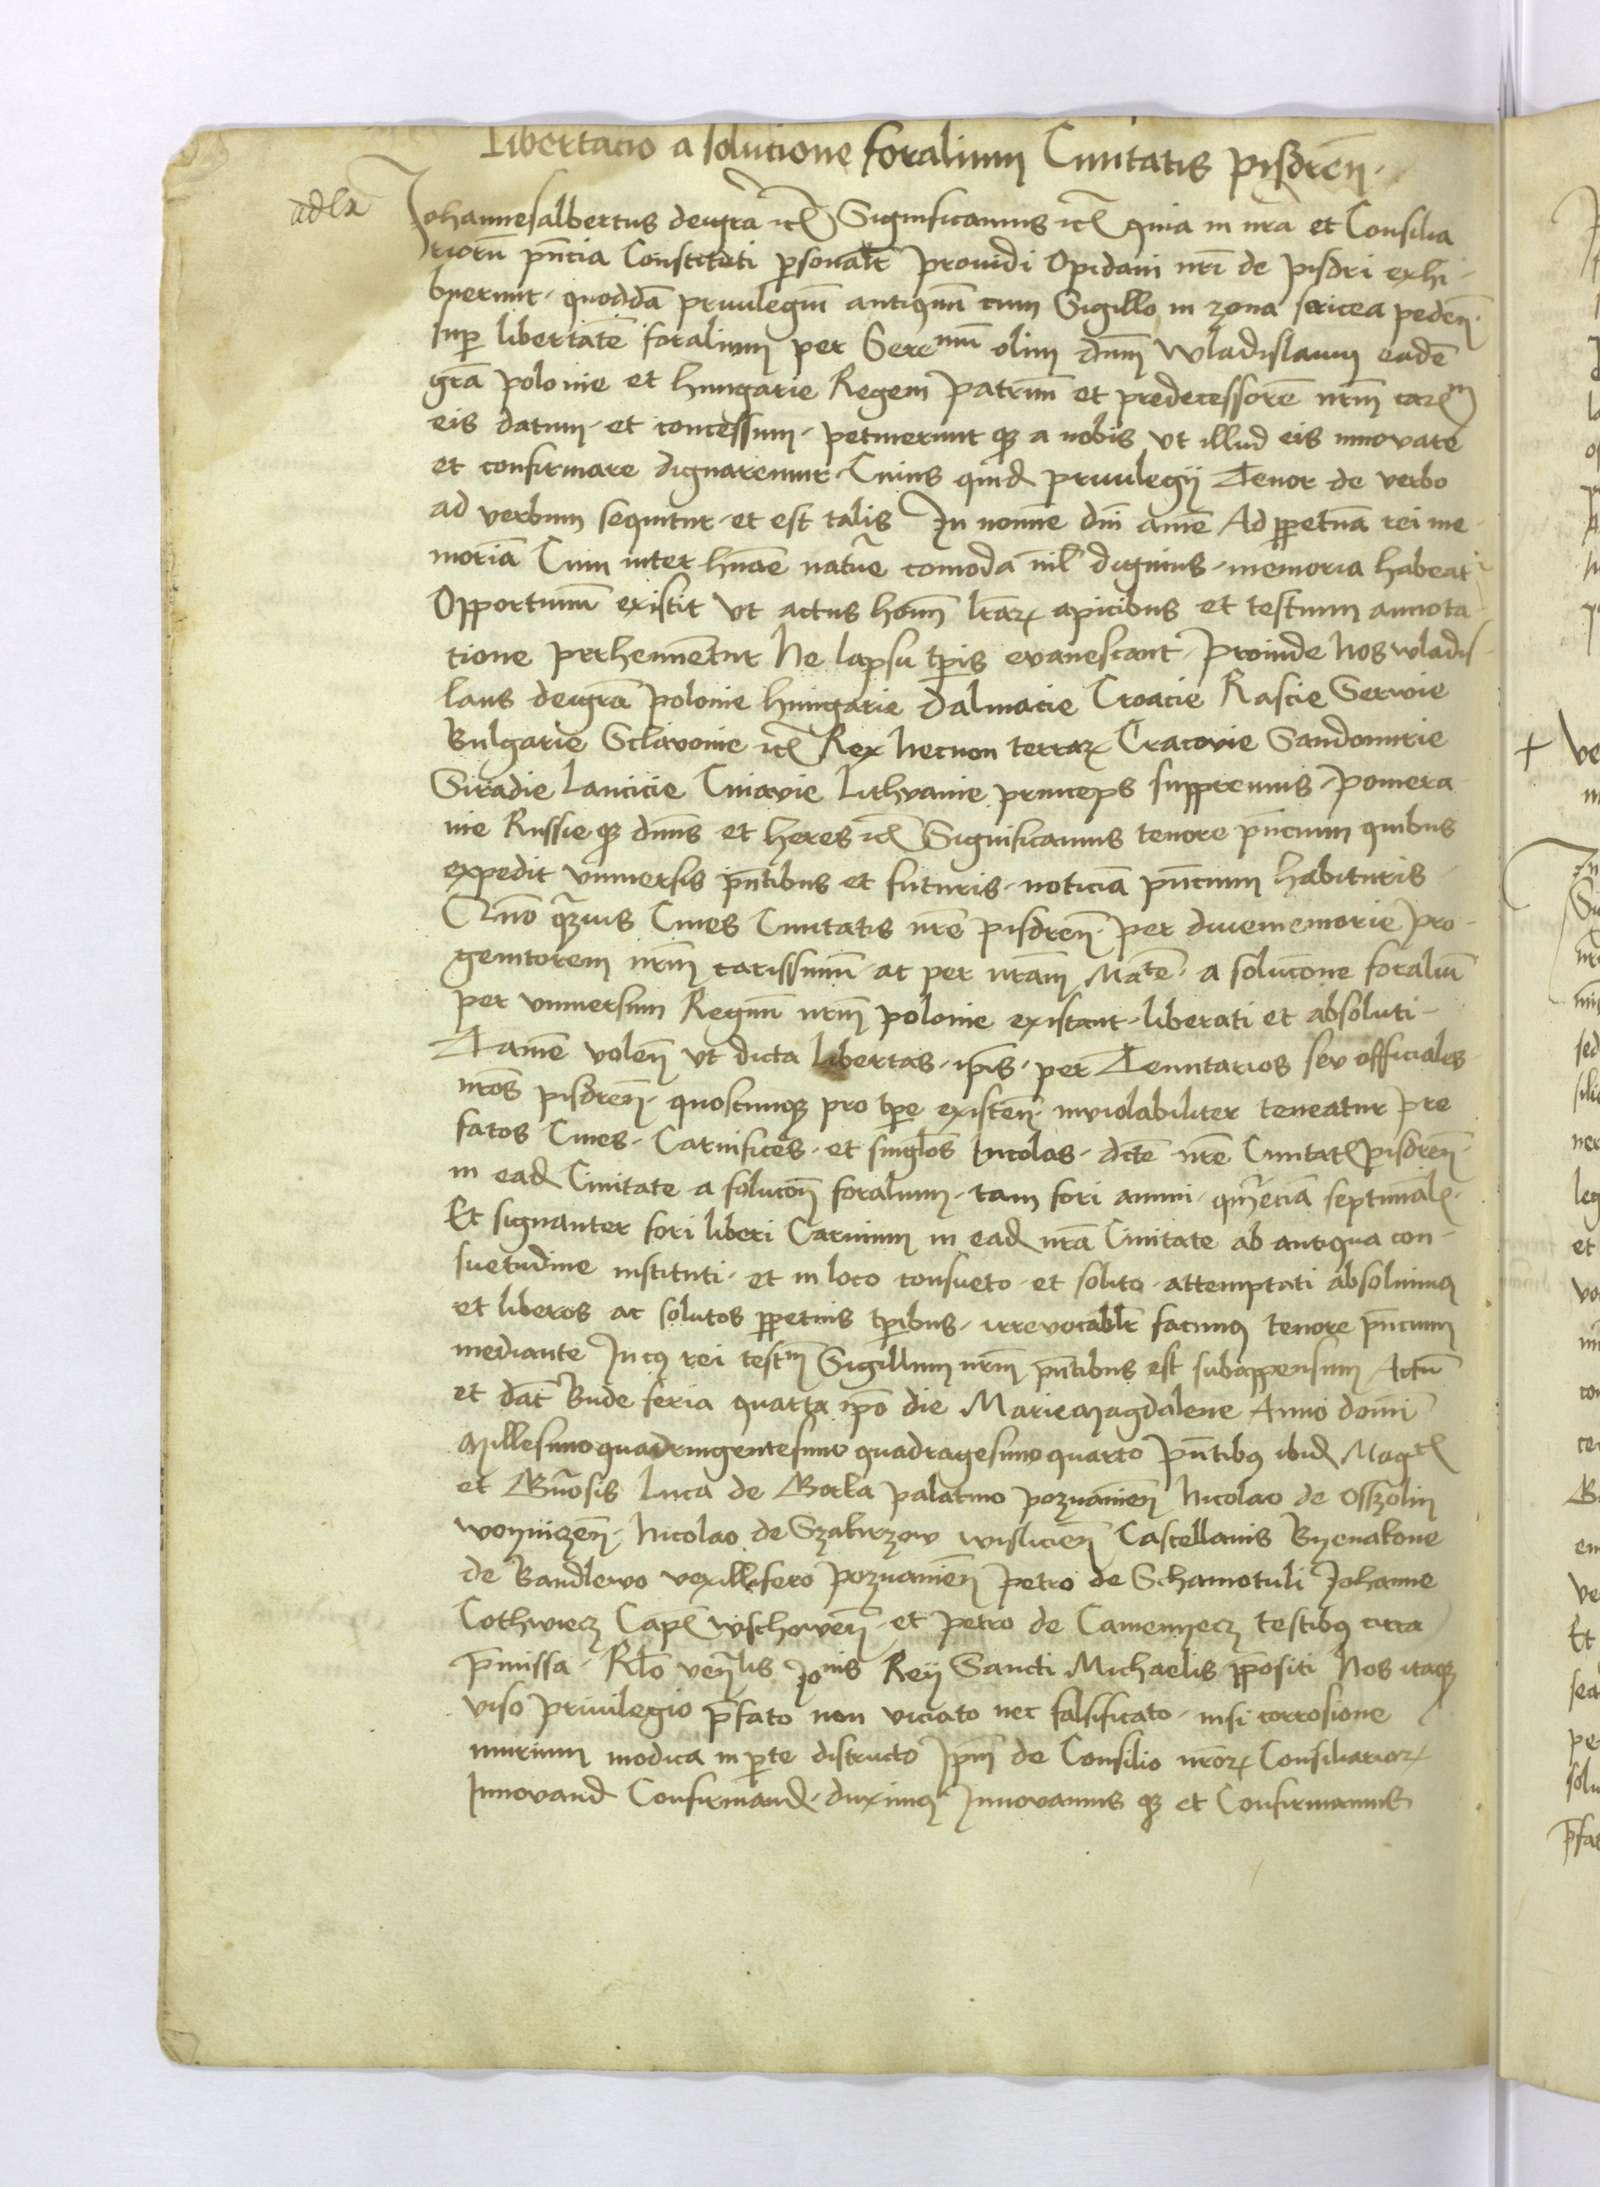 Libertacio a solucione foralium Civitatis pisdreñ.
Johannesalbertus deigrã etc̃ Significamus etc̃ quia in nrã et Consilia
riorũ pñcia Constituti psonalr̃ providi Opidani nrĩ de pisdri exhi-
buerunt. quoddã privilegiũ antiquũ cum Sigillo in zona sericea pedeñ.
sup libertatẽ foralium per Serenmũ olim dnm̃ Wladislaum eadẽ
grã polonie et hungarie Regem patruũ et predecessorẽ nrm̃ carᵐ
eis datum. et concessum. petiverunt qꝫ a nobis ut illud eis innovare
et confirmare dignaremur. Cuius quid̃ privilegij Tenor de verbo
ad verbum sequitur. et est talis In nomine dnĩ amẽ Ad ppetuã rei me-
moriã Cum inter hnãe naturẽ comoda nil̃ dignius. memoria habeat̃
Opportunũ existit ut actus hoim̃ lrãꝝ apicibus et testium annota-
tione perhennentur Ne lapsu tpĩs evanescant. Proinde Nos wladis-
laus deigrã polonie hungarie Dalmacie Croacie Rascie Servie
Bulgarie Sclavonie etc̃ Rex Necnon terraꝝ Cracovie Sandomirie
Siradie Lancicie Cuiavie Lithvanie princeps suppremus. pomera
nie Russie qꝫ dnũs et heres etc̃ Significamus tenore pñcium quibus
expedit universis pñtibus et futuris. noticiã pñcium habituris
Quõ qꝫvis Cives Civitatis nrẽ pisdreñ. per divememorie pro-
genitorem nrm̃ carissimũ. ac per nrãm Matẽ. a solucõne foraliũ
per universum Regnũ nrm̃ polonie existant. liberati et absoluti-
Tamẽ voleñ ut dicta libertas. ipĩs. per Tenutarios seu officiales
nrõs pisdreñ. quoscunqꝫ pro tpẽ existeñ. inviolabiliter teneatur pre
fatos Cives. Carnifices. et singlõs Incolas. dctẽ nrẽ Civitatꝭ pisdreñ.
in ead̃ Civitate a solucoñ foralium. tam fori annui. qm̃ eciã septimalꝭ.
Et signanter fori liberi Carnium in ead̃ nrã Civitate ab antiqua con-
suetudine instituti. et in loco consueto. et solito. attemptati absolvimꝰ
et liberos ac solutos ppetuis tpibus. irrevocablr̃ facimꝰ tenore pñcium
mediante In cꝰ rei testᵐ Sigillum nrm̃ pñtibus est subappensum Actũ
et dat̃ Bude feria quarta ipõ die Mariemagdalene Anno domĩ
Millesimoquadringentesimo quadragesimoquarto pñtibꝰ ibid̃ Magcꝭ
et Gnõsis Luca de Gorka palatino poznanieñ Nicolao de Osszolin
woyniczeñ. Nicolao de Szakrzow wislicieñ Castellanis Byenakone
de Bandlewo vexillifero poznanieñ petro de Schamotuli Johanne
Cothwicz Capꝭ wschoveñ. et petro de Camenyecz testibꝰ circa
pmissa. Rlõ venlis Joⁿⁱˢ Rey Sancti Michaelis ppositi Nos itaqꝫ
viso privilegio pfato non viciato nec falsificato. nisi corrosione
murium modica in pte distructo Ipm̃ de Consilio nrõꝝ Consiliarioꝝ
Innovand̃ Confirmand̃. duximꝰ Innovamus qꝫ et Confirmamus